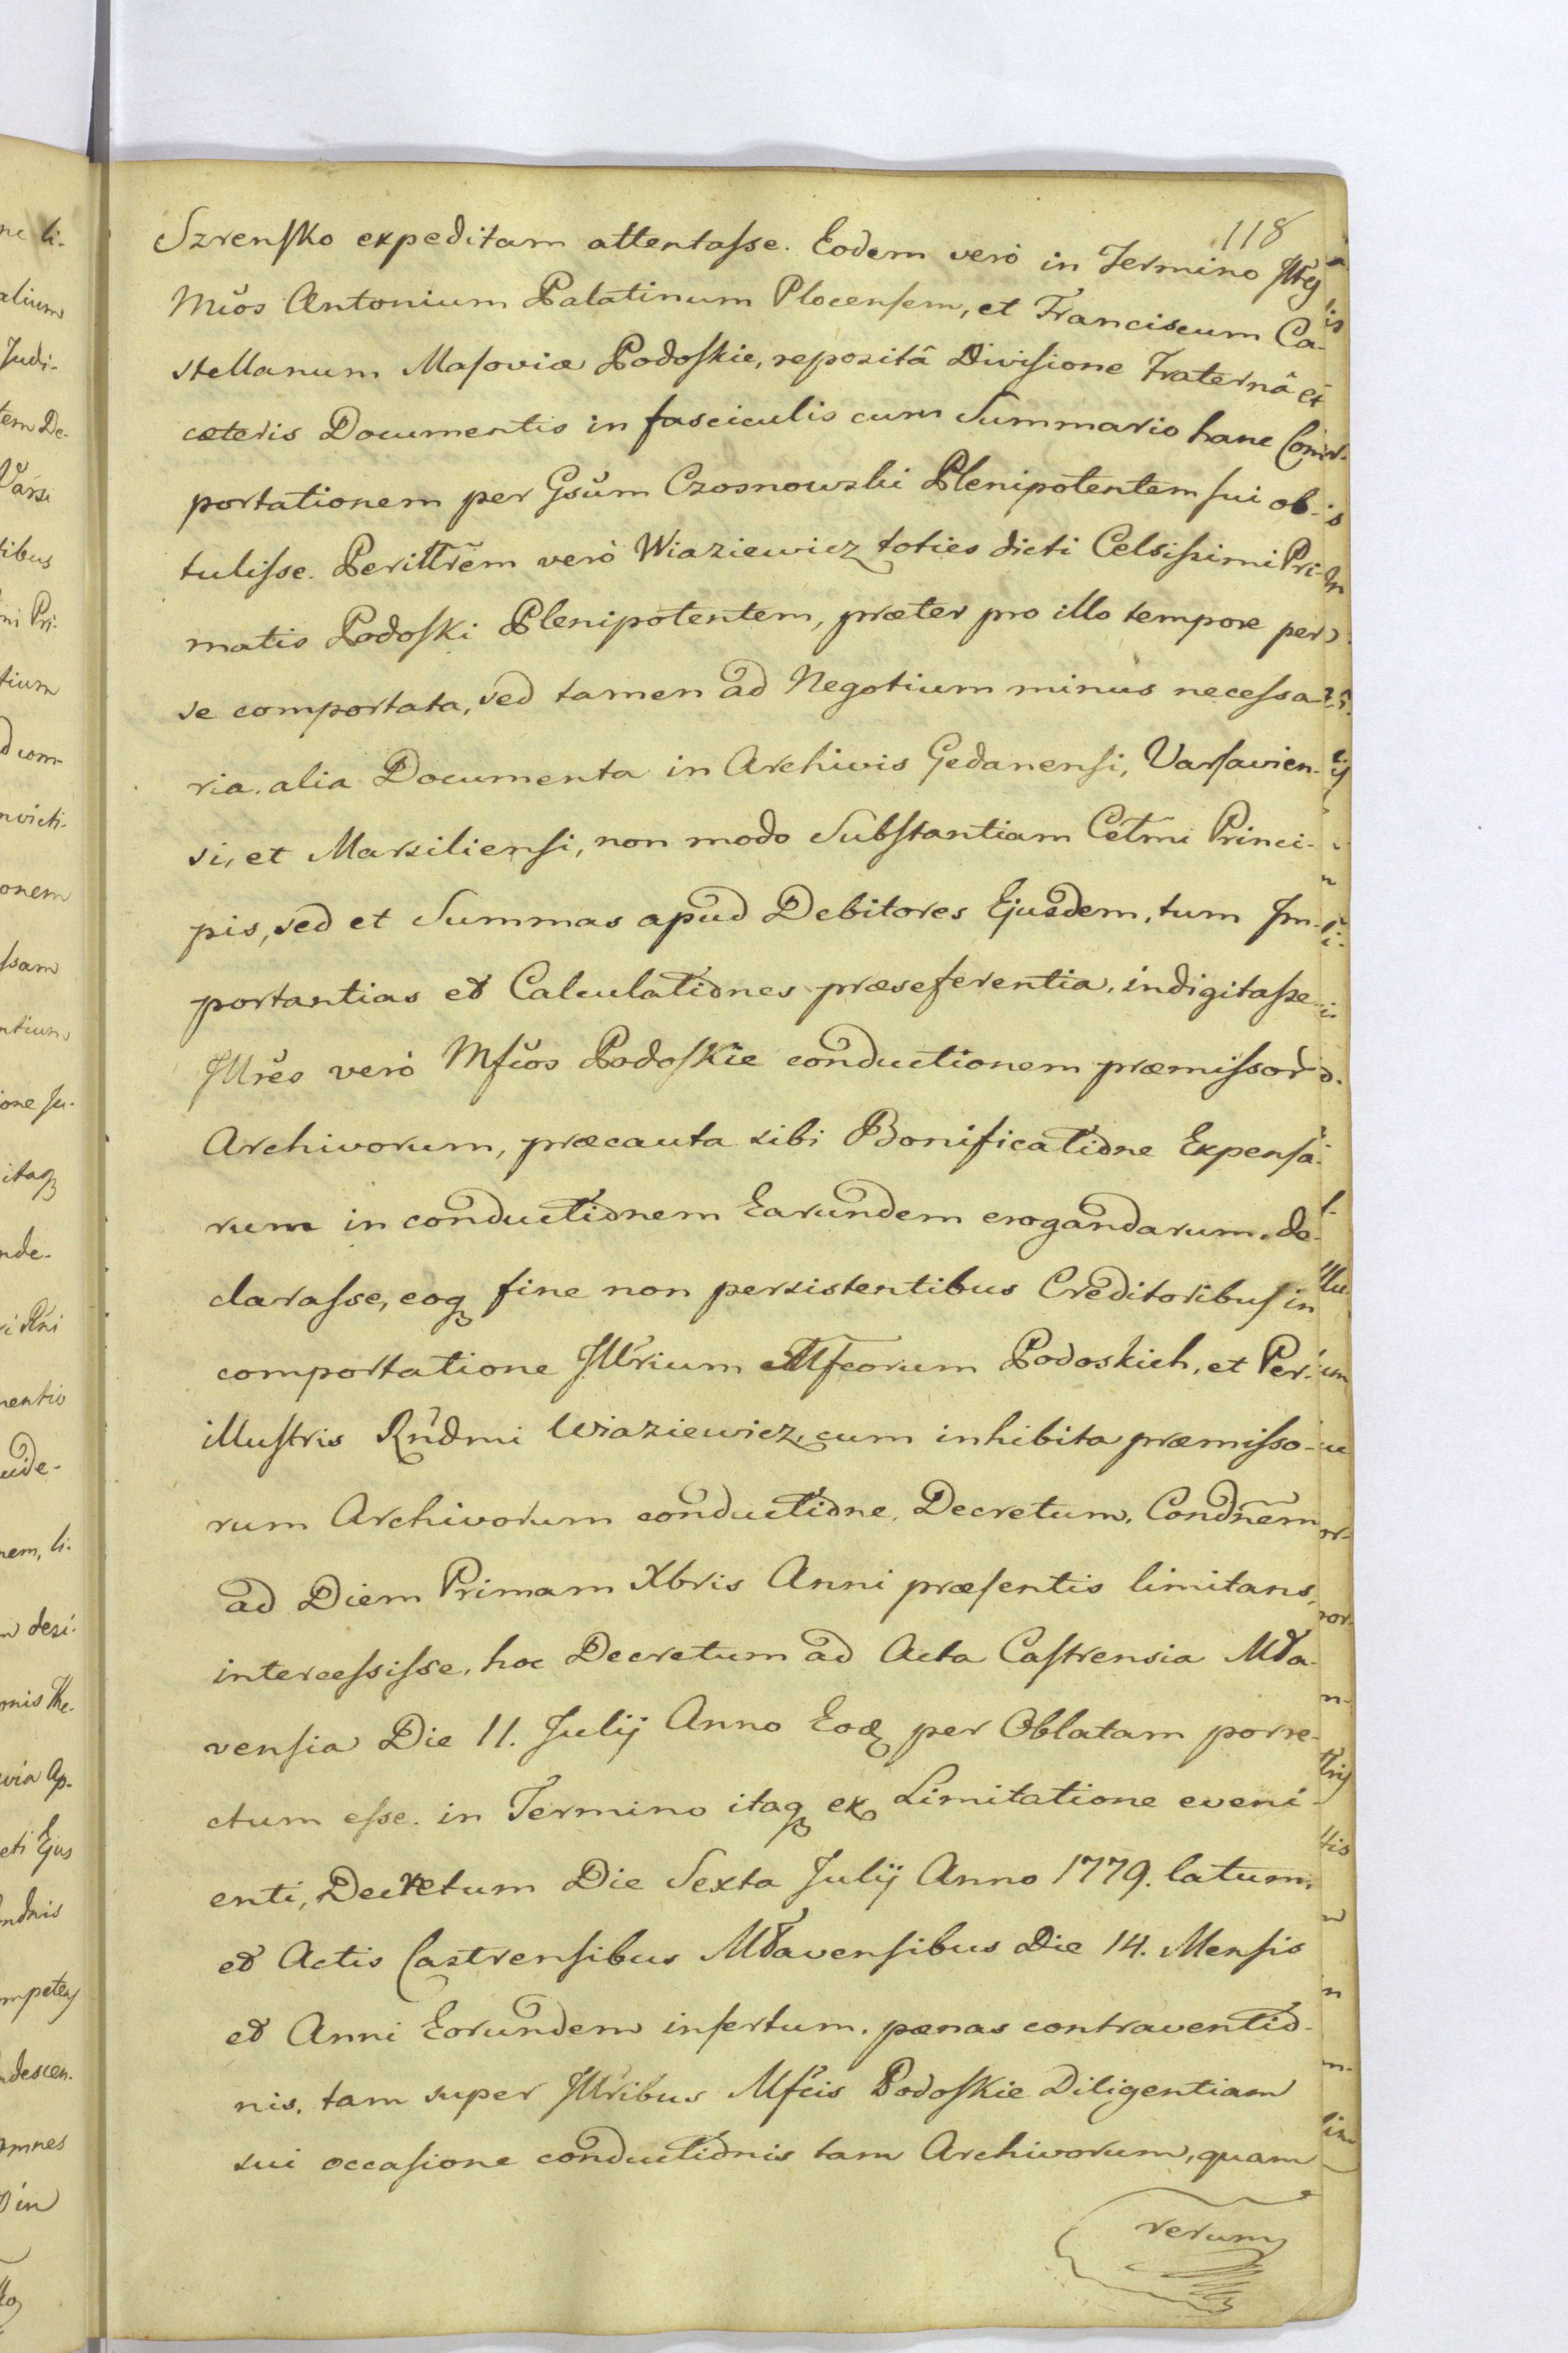 118
Szrensko expeditam attentasse. Eodem verò in Termino Illres
Mcos Antonium Palatinum Plocensem, et Franciscum Ca-
stellanum Masoviæ Podoskie, repositâ Divisione Fraternâ et
cæteris Documentis in fasciculis cum Summario hanc Com-
portationem per Gsum Czosnowski Plenipotentem sui ob-
tulisse. Perillrem verò Wiaziewicz toties dicti Celsissimi Pri-
matis Podoski Plenipotentem, præter pro illo tempore per
se comportata, sed tamen ad Negotium minus necessa-
ria, alia Documenta in Archivis Gedanensi, Varsavien-
si, et Marsiliensi, non modo Substantiam Celmi Princi-
pis, sed et Summas apud Debitores Ejusdem, tum Im-
portantias et Calculationes præseferentia, indigitasse
Illres verò Mfcos Podoskie conductionem præmissor
Archivorum, præcauta sibi Bonificatione Expensa-
rum in conductionem Earundem erogandarum, de-
clarasse, eoq fine non persistentibus Creditoribus in
comportatione Illrium Mfcorum Podoskich, et Per-
illustris Rndmi Wiaziewicz, cum inhibita præmisso-
rum Archivorum conductione, Decretum, Condnem
ad Diem Primam Xbris Anni præsentis limitans,
intercessisse, hoc Decretum ad Acta Castrensia Mła-
vensia Die 11. Julij Anno Eod per Oblatam porre-
ctum esse. in Termino itaq ex Limitatione eveni-
enti, Decretum Die Sexta Julij Anno 1779. latum,
et Actis Castrensibus Młavensibus Die 14. Mensis
et Anni Eorundem insertum, pænas contraventio-
nis, tam super Illribus Mfcis Podoskie Diligentiam
sui occasione conductionis tam Archivorum, quam
rerum